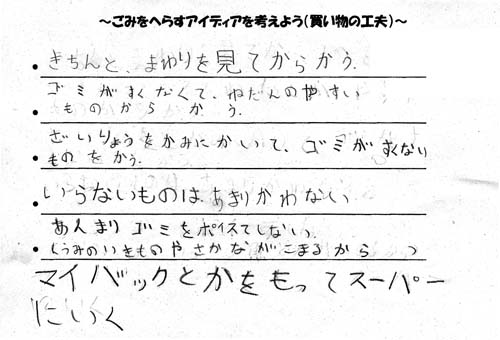 ～ごみをへらすアイディアを考えよう(買い物の工夫)～
・きちんと、まわりを見てからかう。
ゴミがすくなくて、ねだんのやすい
・ものからかう。
ざいりょうをかみにかいて、ゴミがすくない
・ものをかう。
・いらないものは、あまりかわない
あんまりゴミをポイステしない。
・(うみのいきものやさかながこまるから)
マイバックとかをもってスーパー
にいく